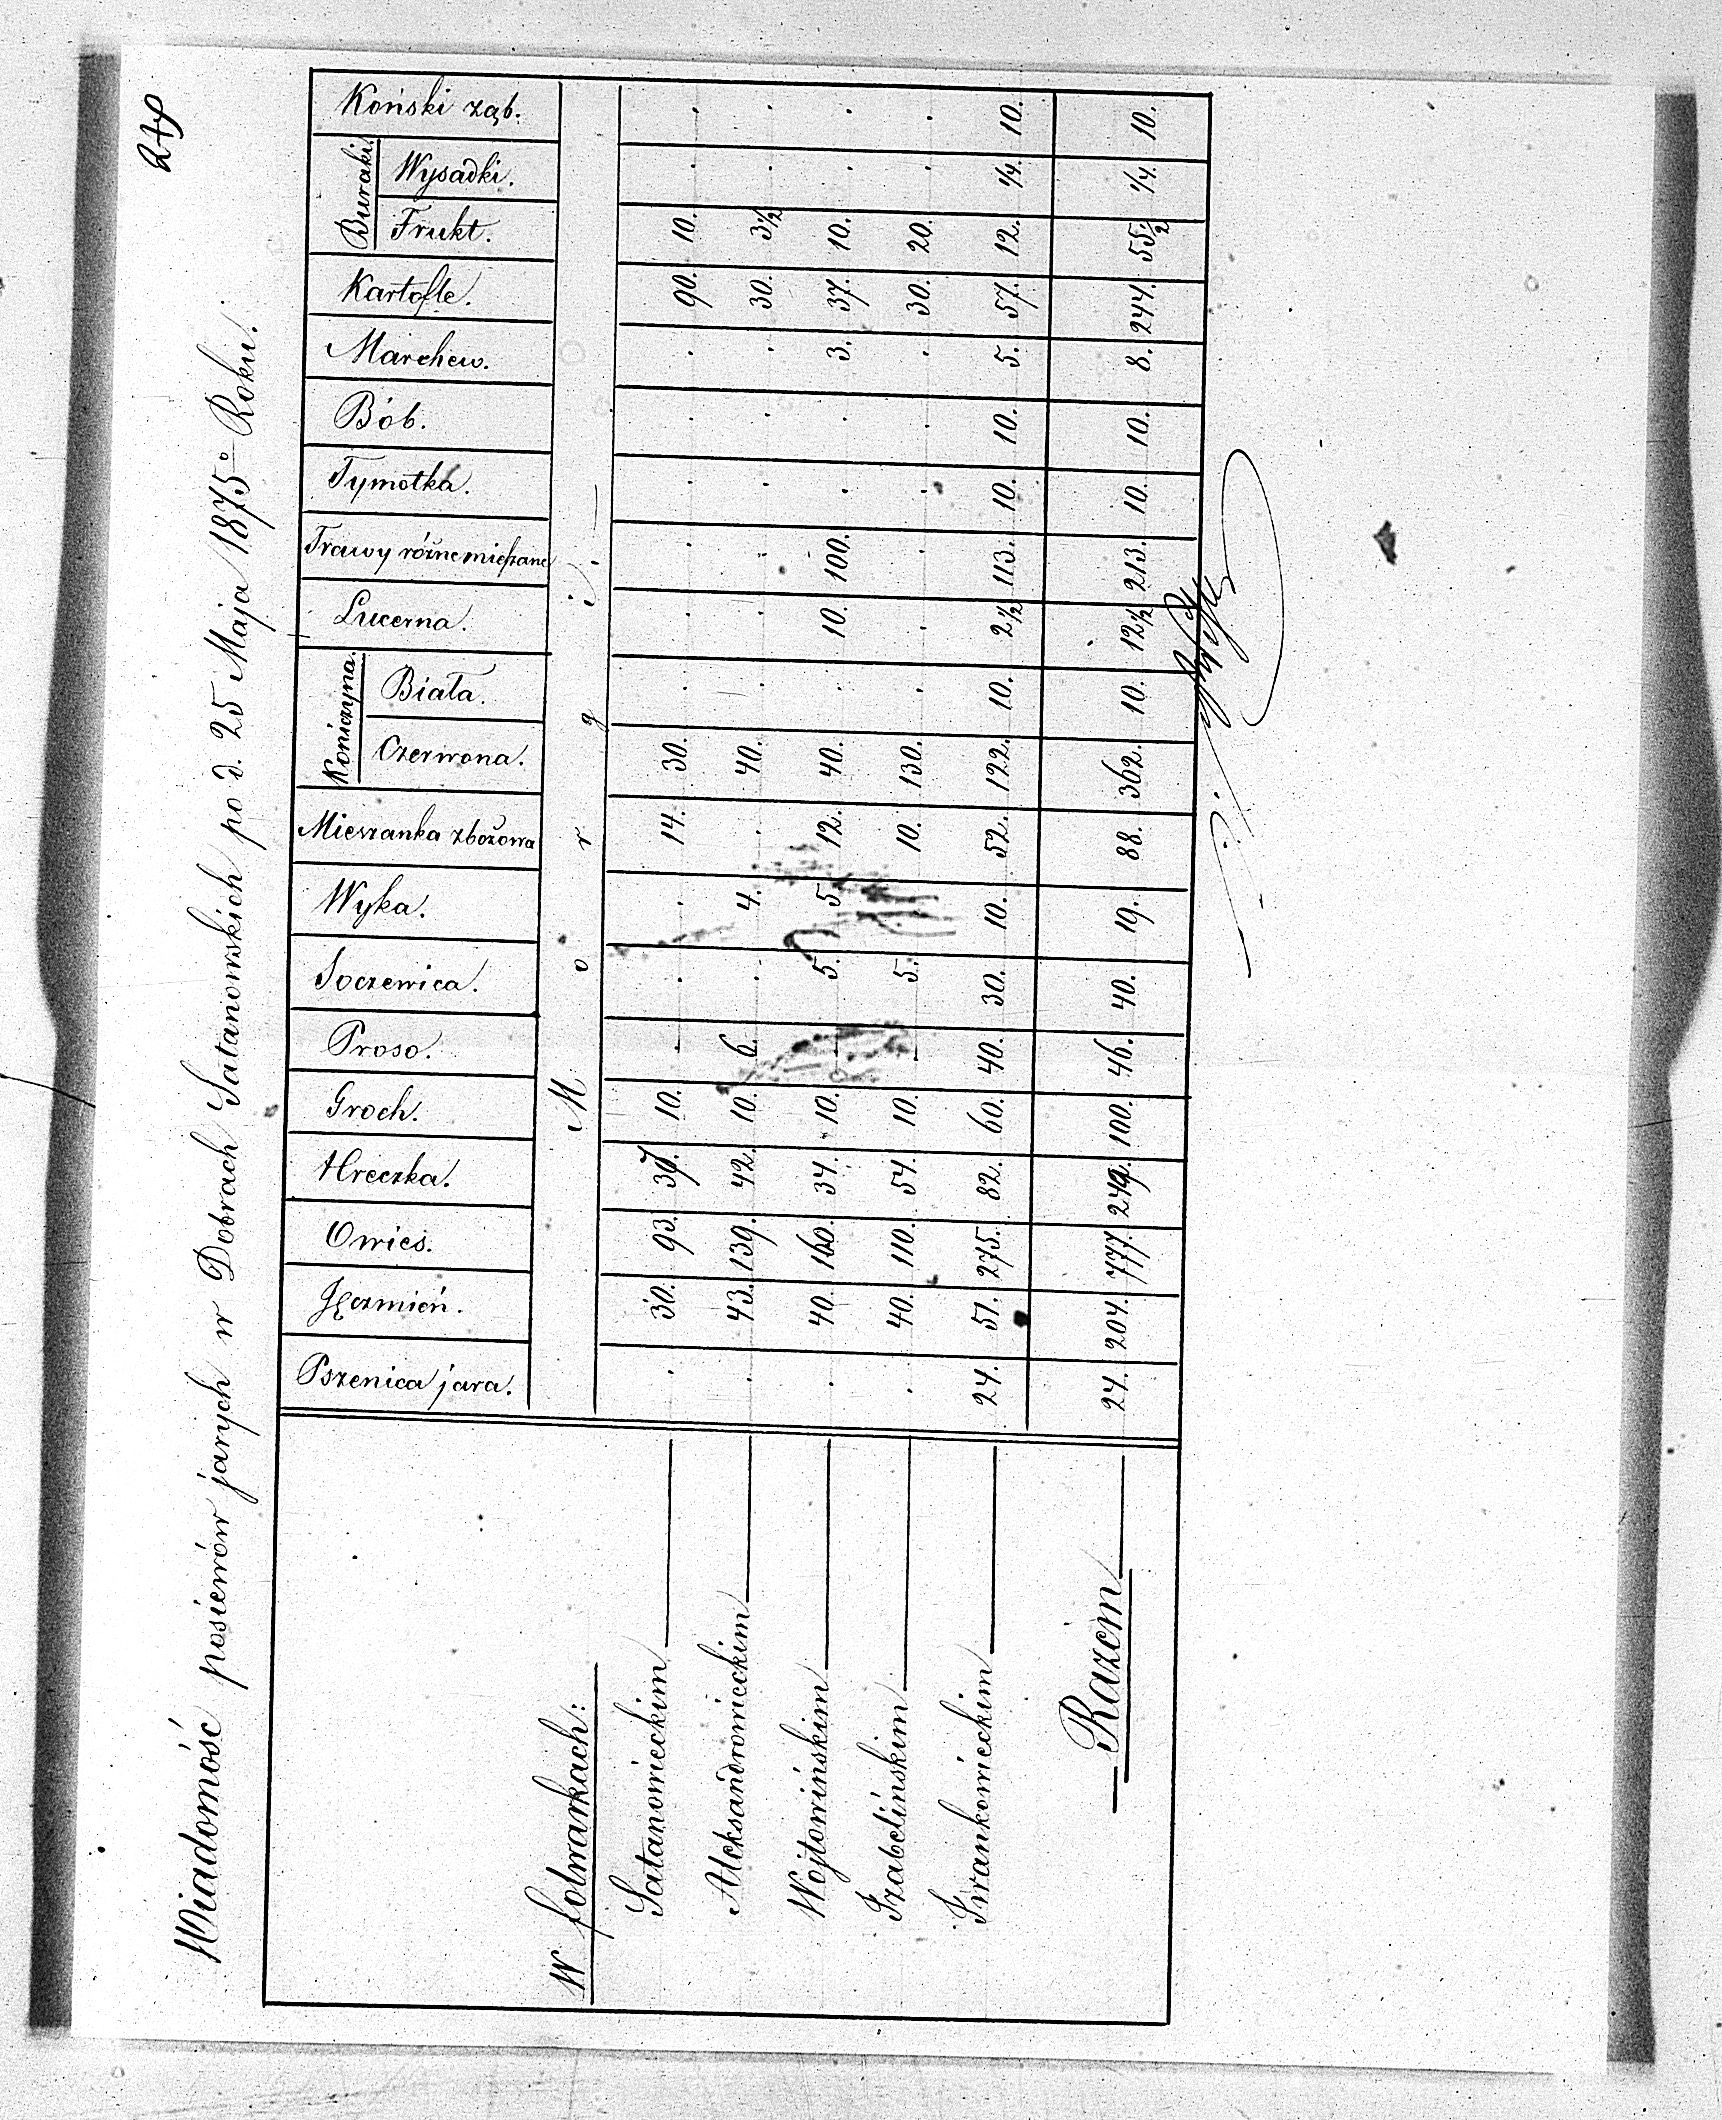 Wiadomość posiewów jarych w Dobrach Satanowskich po d. 25 Maja 1875º Roku.
W folwarkach: | Pszenica jara. | Jęczmień. | Owies. | Hreczka. | Groch. | Proso. | Soczewica. | Wyka. | Mieszanka zbożowa | Koniczyna. Czerwona. | Biała. | Lucerna. | Trawy różne mieszane | Tymotka. | Bób. | Marchew. | Kartofle. | Buraki. Frukt. | Wysadki. | Koński ząb.
M o r g i. —
Satanowieckim | . | 30. | 93. | 37. | 10. | . | . | . | 14. | 30. | . | . | . | . | . | . | 90. | 10. | . | .
Aleksandrowieckim | . | 43. | 139. | 42. | 10. | 6. | . | 4. | . | 40. | . | . | . | . | . | . | 30. | 3½ | . | .
Wojtowińskim | . | 40. | 160. | 34. | 10. | . | 5. | 5. | 12. | 40. | . | 10. | 100. | . | . | 3. | 37. | 10. | . | .
Izabelińskim | . | 40. | 110. | 54. | 10. | . | 5. | . | 10. | 130. | . | . | . | . | . | . | 30. | 20. | . | .
Iwankowieckim | 24. | 51. | 275. | 82. | 60. | 40. | 30. | 10. | 52. | 122. | 10. | 2½ | 113. | 10. | 10. | 5. | 57. | 12. | ¼. | 10.
Razem | 24. | 204. | 777. | 249. | 100. | 46. | 40. | 19. | 88. | 362. | 10. | 12½ | 213. | 10. | 10. | 8. | 244. | 55½ | ¼. | 10.